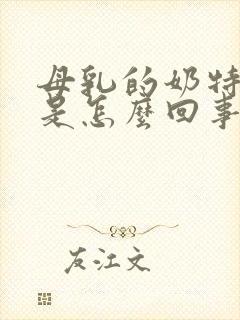 母乳的奶特
是怎麽回事
友江文